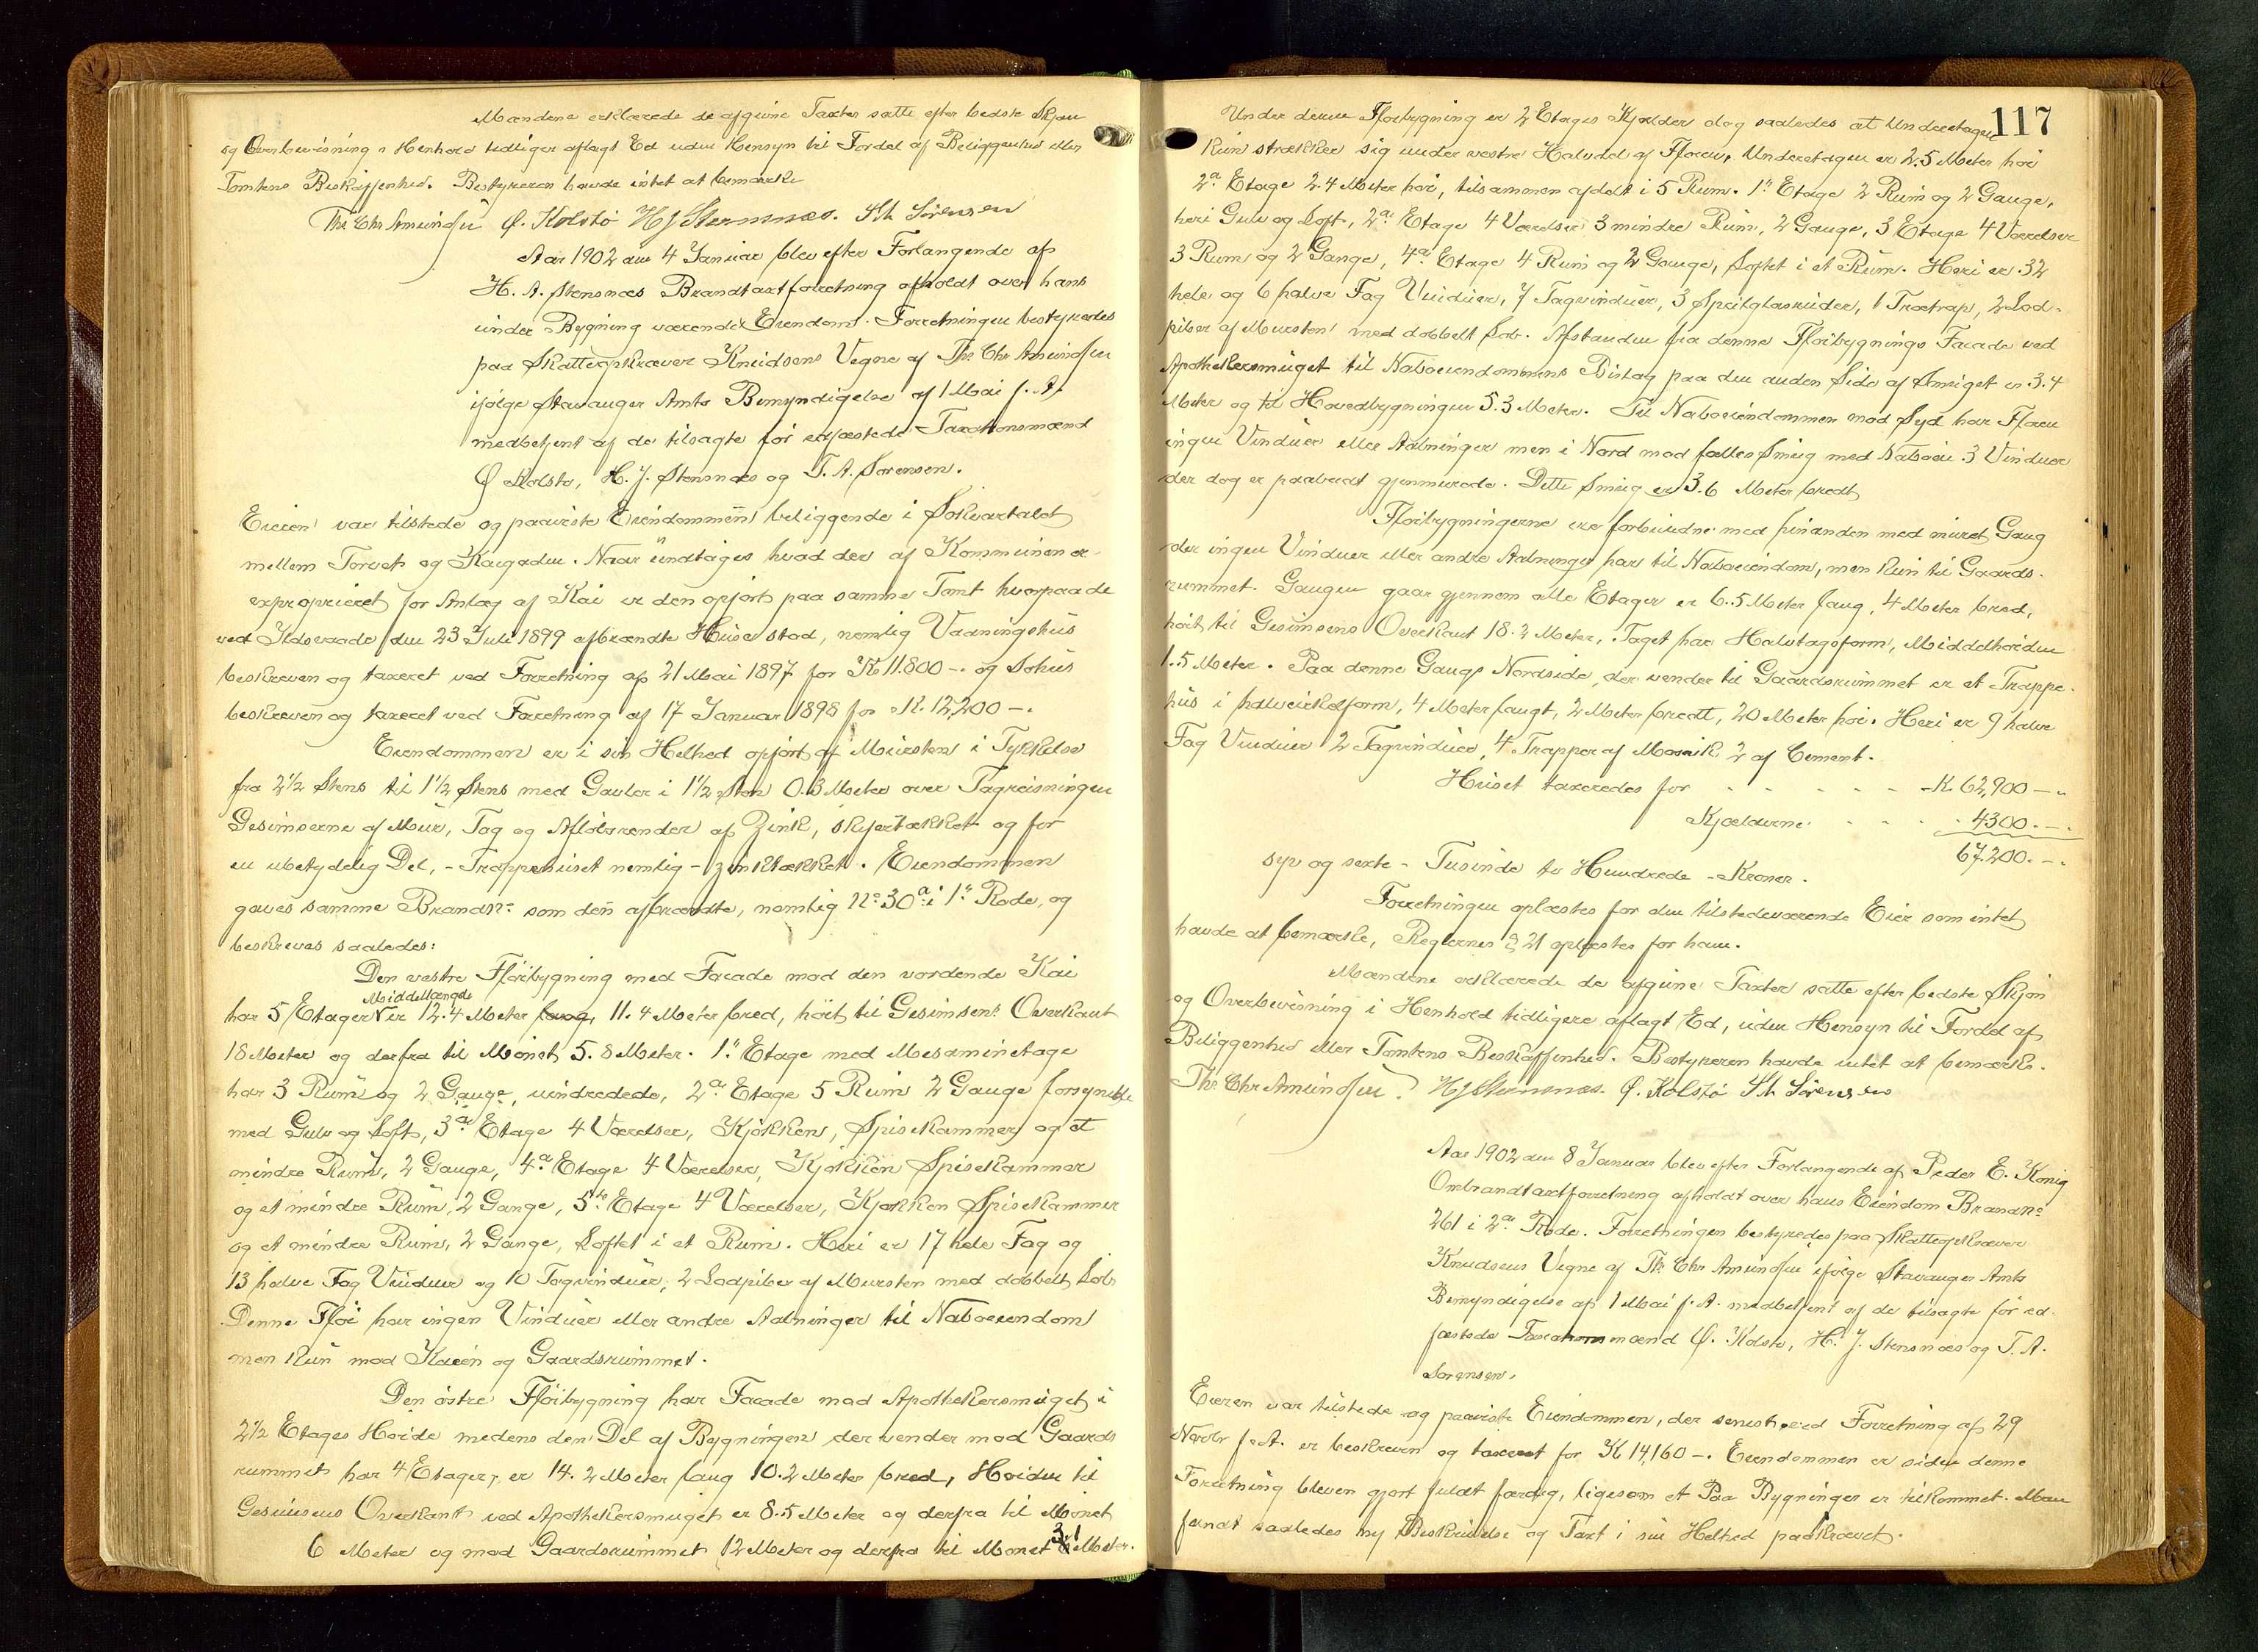 Mændene erklærede de afgivne Taxter satte efter bedste Skjøn
og Overbevisning i Henhold tidligere aflagt Ed uden Hensyn til Fordel af Beliggenhed eller
Tomtens Beskaffenhed. Bestyreren havde intet at bemærke
Ths Chr Amundsen Ø. Kolstø H J Stensnæs. T A Sörensen
Aar 1902 den 4 Januar blev efter Forlangende af
H. A. Stensnæs Brandtaxtforretning afholdt over hans
under Bygning værende Eiendom. Forretningen bestyredes
paa Skatteopkræver Knudsens Vegne af Ths Chr Amundsen
ifølge Stavanger Amts Bemyndigelse af 1 Mai f. A.
medbetjent af de tilsagte før edfæstede Taxationsmænd
Ø Kolstø, H. J. Stensnæs og T. A. Sørensen.
Eieren var tilstede og paaviste Eiendommen beliggende i Søkvartalet
mellem Torvet og Kaigaden. Naar undtages hvad der af Kommunen er
exproprieret for Anlæg af Kai er den opført paa samme Tomt hvorpaa de
ved Ildsvaade den 23 Juli 1899 afbrændte Huse stod, nemlig Vaaningshus
beskreven og taxeret ved Forretning af 21 Mai 1897 for K 11.800 -. og Søhus
beskreven og taxeret ved Forretning af 17 Januar 1898 for K. 12,200 -.
Eiendommen er i sin Helhed opført af Mursten i Tykkelse
fra 2 1/2 Stens til 1 1/2 Stens med Gavler i 1 1/2 Sten 0.3 Meter over Tagreisningen
Gesimserne af Mur, Tag og Afløbsrender af Zink, skifertækket og for
en ubetydelig Del, - Trappehuset nemlig - zinktækket. Eiendommen
gaves samme Brandnº som den afbrændte, nemlig Nº 30a i 1ste Rode, og
beskreves saaledes:
Den vestre Fløibygning med Facade mod den vordende Kai
Middellængde
har 5 Etager er 12.4 Meter lang, 11.4 Meter bred, høit til Gesimsens Overkant
18 Meter og derfra til Mønet 5.8 Meter. 1ste Etage med Mesaminetage
har 3 Rum og 2 Gange, uindredede, 2den Etage 5 Rum 2 Gange forsynede
med Gulv og Loft, 3die Etage 4 Værelser, Kjøkken, Spisekammer og et
mindre Rum, 2 Gange, 4de Etage 4 Værelser, Kjøkken Spisekammer
og et mindre Rum, 2 Gange, 5te Etage 4 Værelser, Kjøkken Spisekammer
og et mindre Rum, 2 Gange, Loftet i et Rum. Heri er 17 hele Fag og
13 halve Fag Vinduer og 10 Tagvinduer, 2 Ladpiber af Mursten med dobbelt Løb
Denne Fløi har ingen Vinduer eller andre Aabninger til Naboeiendom
men kun mod Kaien og Gaardsrummet.
Den østre Fløibygning har Facade mod Apothekersmuget i
2 1/2 Etages Høide medens den Del af Bygningen der vender mod Gaards
rummet har 4 Etager, er 14.2 Meter lang 10.2 Meter bred, Høiden til
Gesimsens Overkant ved Apothekersmuget er 8.5 Meter og derfra til Mønet
6 Meter og mod Gaardsrummet 12 Meter og derfra til Mønet 3.1 Meter.
117
Under denne Fløibygning er 2 Etages Kjælder dog saaledes at Underetagen
kun strækker sig under vestre Halvdel af Fløien, Underetagen er 2.5 Meter høi
2den Etage 2.4 Meter høi, tilsammen afdelt i 5 Rum. 1ste Etage 2 Rum og 2 Gange,
heri Gulv og Loft, 2den Etage 4 Værelser 3 mindre Rum, 2 Gange, 3 Etage 4 Værelser
3 Rum og 2 Gange, 4de Etage 4 Rum og 2 Gange, Loftet i et Rum. Heri er 32
hele og 6 halve Fag Vinduer, 7 Tagvinduer, 3 Speilglasruder, 1 Trætrap, 2 Lod-
piber af Mursten med dobbelt Løb. Afstanden fra denne Fløibygnings Facade ved
Apothekersmuget til Naboeiendommens Bislag paa den anden Side af Smuget er 3.4
Meter og til Hovedbygningen 5.3 Meter. Til Naboeiendommen mod Syd har Fløien
ingen Vinduer eller Aabninger men i Nord mod fælles Smug med Naboen 3 Vinduer
der dog er paabudt gjenmurede. Dette Smug er 3.6 Meter bredt
Fløibygningerne ere forbundne med hinanden med muret Gang
der ingen Vinduer eller andre Aabninger har til Naboeiendom, men kun til Gaards-
rummet. Gangen gaar gjennem alle Etager er 6.5 Meter lang, 4 Meter bred,
høit til Gesimsens Overkant 18.2 Meter, Taget har Halvtagsform, Middelhøiden
1.5 Meter. Paa denne Gangs Nordside, der vender til Gaardsrummet er et Trappe-
hus i halvcirkelform, 4 Meter langt, 2 Meter bredt, 20 Meter høi. Heri er 9 halve
Fag Vinduer 2 Tagvinduer, 4 Trapper af Mosaik 2 af Cement.
Huset taxeredes for - - - - - - K 62,900 - -
Kjælderne - - - 4300. -.
67.200. -.
syv og sexti - Tusinde to Hundrede - Kroner.
Forretningen oplæstes for den tilstedeværende Eier som intet
havde at bemærke, Reglernes § 21 oplæstes for ham.
Mændene erklærede de afgivne Taxter satte efter bedste Skjøn
og Overbevisning i Henhold tidligere aflagt Ed, uden Hensyn til Fordel af
Beliggenhed eller Tomtens Beskaffenhed. Bestyreren havde intet at bemærke.
Ths Chr Amundsen. H J Stensnæs. Ø. Kolstø T A Sörensen
Aar 1902 den 8 Januar blev efter Forlangende af Peder E. Konig
Ombrandtaxtforretning afholdt over hans Eiendom Brandnº
261 i 2den Rode. Forretningen bestyredes paa Skatteopkræver
Knudsens Vegne af Ths Chr Amundsen ifølge Stavanger Amts
Bemyndigelse af 1 Mai f. A. medbetjent af de tilsagte før ed-
fæstede Taxationsmænd Ø. Kolstø, H. J. Stensnæs og T. A.
Sørensen.
Eieren var tilstede og paaviste Eiendommen, der senest ved Forretning af 29
Novbr f. A. er beskreven og taxeret for K 14,160 -. Eiendommen er siden denne
Forretning bleven gjort fuldt færdig, ligesom et Paa Bygninger er tilkommet. Man
fandt saaledes ny Beskrivelse og Taxt i sin Helhed paakrævet.